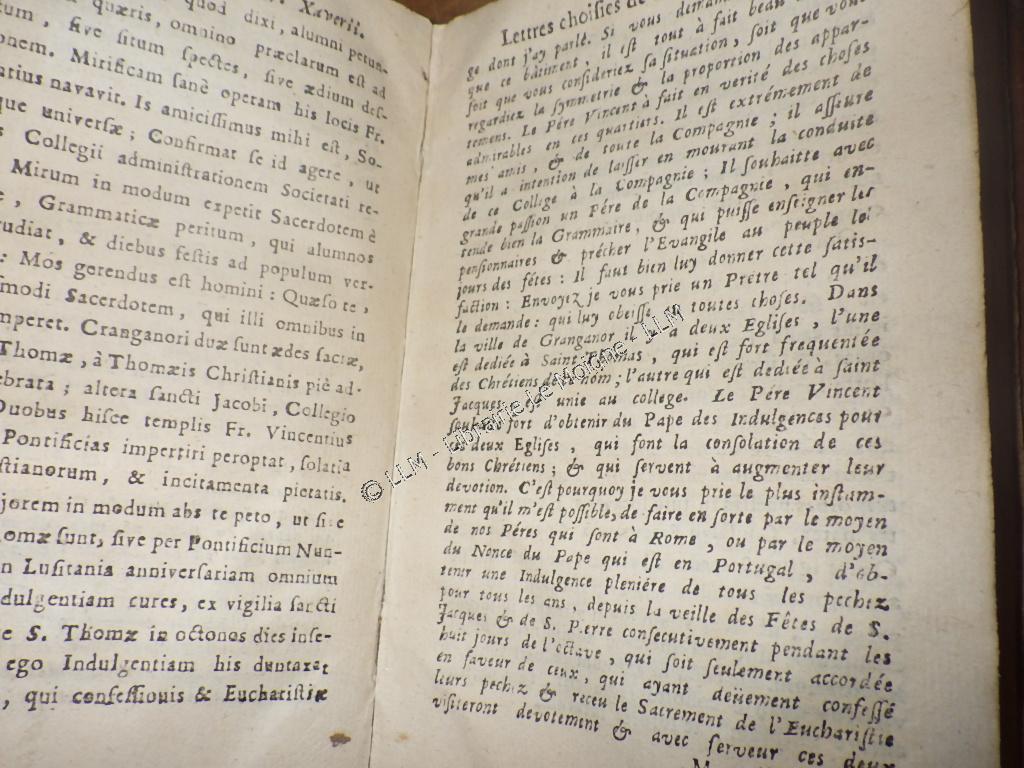 Xaverii.
quod dixi, alumni petun-
quæris, omnino præclarum est ad
, sive situm spectes, sive ædium des-
. Mirificam sanè operam his locis Fr.
navavit. Is amicissimus mihi est, So-
que universæ; Confirmat se id agere, ut
Collegii administrationem Societati re-
Mirum in modum expetit Sacerdotem è
, Grammaticæ peritum, qui alumnos
, & diebus festis ad populum ver-
: Mos gerendus est homini: Quæso te,
modi Sacerdotem, qui illi omnibus in
. Cranganori duæ sunt ædes sacræ,
Thomæ, à Thomæis Christianis piè ad-
; altera sancti Jacobi, Collegio
Duobus hisce templis Fr. Vincentius
Pontificias impertiri peroptat, solatia
, & incitamenta pietatis.
in modum abs te peto, ut sive
sunt, sive per Pontificium Nun-
Lusitania anniversariam omnium
cures, ex vigilia sancti
S. Thomæ in octonos dies inse-
ego Indulgentiam his duntaxat
, qui confessionis & Eucharistiæ
Lettres choisies de
ge dont j'ay parlé. Si vous
que ce bâtiment, il est tout à fait beau
soit que vous consideriez sa situation, soit que vous
regardiez la symmetrie & la proportion des appar-
temens. Le Pére Vincent a fait en verité des choses
admirables en ces quartiers. Il est extrémement de
mes amis, & de toute la Compagnie; il asseure
qu'il a intention de laisser en mourant la conduite
de ce College à la Compagnie; Il souhaitte avec
grande passion un Pére de la Compagnie, qui en-
tende bien la Grammaire, & qui puisse enseigner les
pensionnaires & précher l'Evangile au peuple les
jours des fêtes: Il faut bien luy donner cette satis-
faction: Envoyez je vous prie un Prêtre tel qu'il
le demande: qui luy obeisse toutes choses. Dans
la ville de Granganor il a deux Eglises, l'une
est dediée à Saint Thomas, qui est fort frequentée
des Chrétiens de nom; l'autre qui est dediée à saint
Jacques, est unie au college. Le Pére Vincent
fort d'obtenir du Pape des Indulgences pour
deux Eglises, qui font la consolation de ces
bons Chrétiens; & qui servent à augmenter leur
devotion. C'est pourquoy je vous prie le plus instam-
ment qu'il m'est possible, de faire en sorte par le moyen
de nos Péres qui sont à Rome, ou par le moyen
du Nonce du Pape qui est en Portugal, d'ob-
tenir une Indulgence pleniére de tous les pechez
pour tous les ans, depuis la veille des Fêtes de S.
Jacques & de S. Pierre consecutivement pendant les
huit jours de l'octave, qui soit seulement accordée
en faveur de ceux, qui ayant deüement confessé
leurs pechez & receu le Sacrement de l'Eucharistie
visiteront devotement & avec ferveur ces deux
© LLM - Librairie Le Moulne - LLM